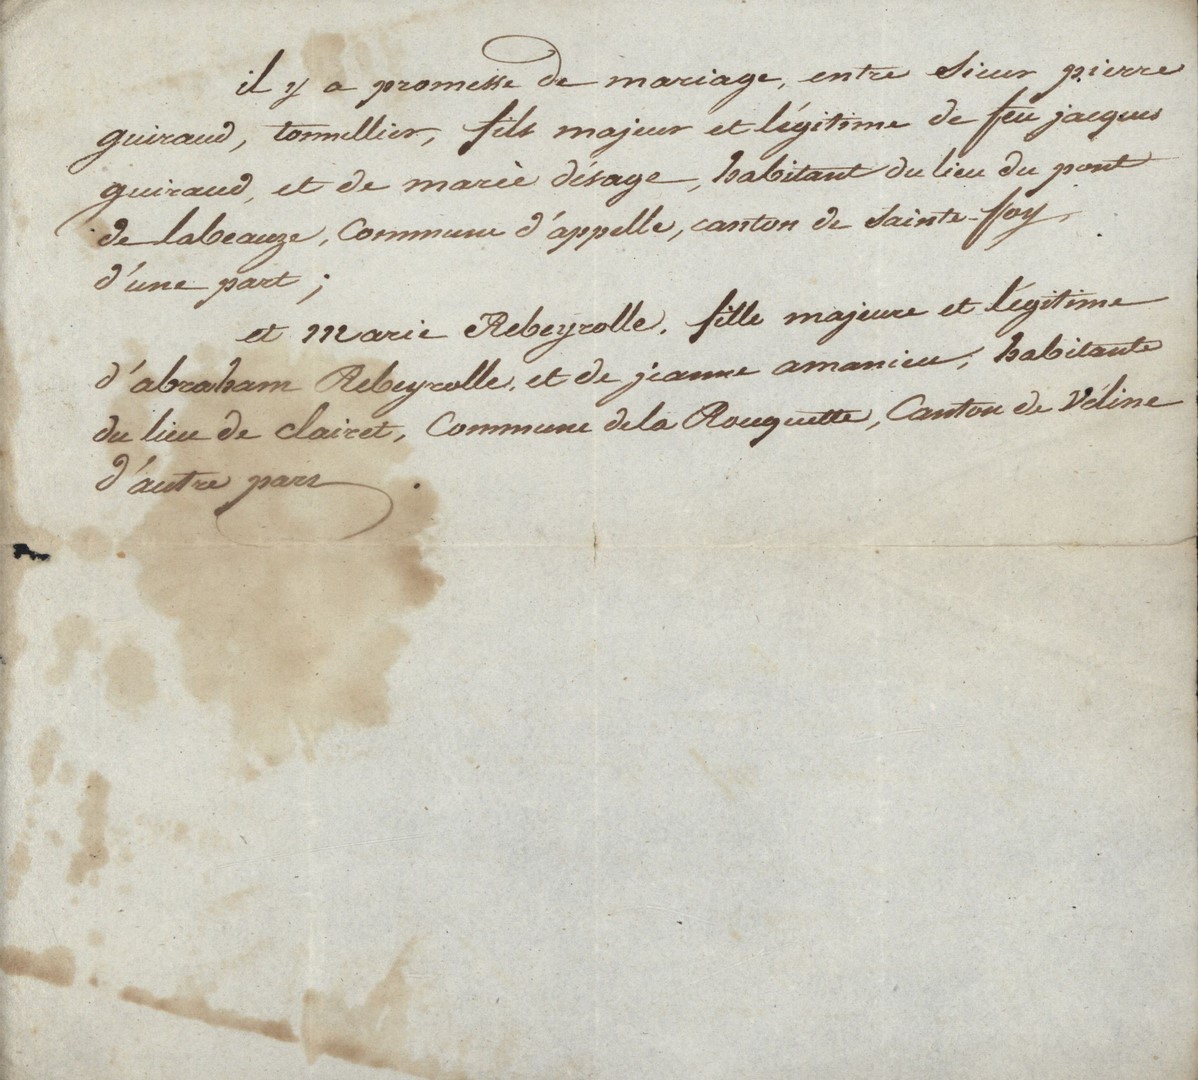 il y a promesse de mariage, entre Sieur pierre
guiraud, tonnellier, fils majeur et légitime de feu jacques
guiraud, et de marie désage, habitant du lieu du pont
de labeauze, Commune d'appelle, canton de Sainte-foy
d'une part ;
et Marie Rebeyrolle, fille majeure et légitime
d'abraham Rebeyrolle, et de jeanne amanieu, habitante
du lieu de clairet, Commune de la Rouquette, Canton de Véline
d'autre part